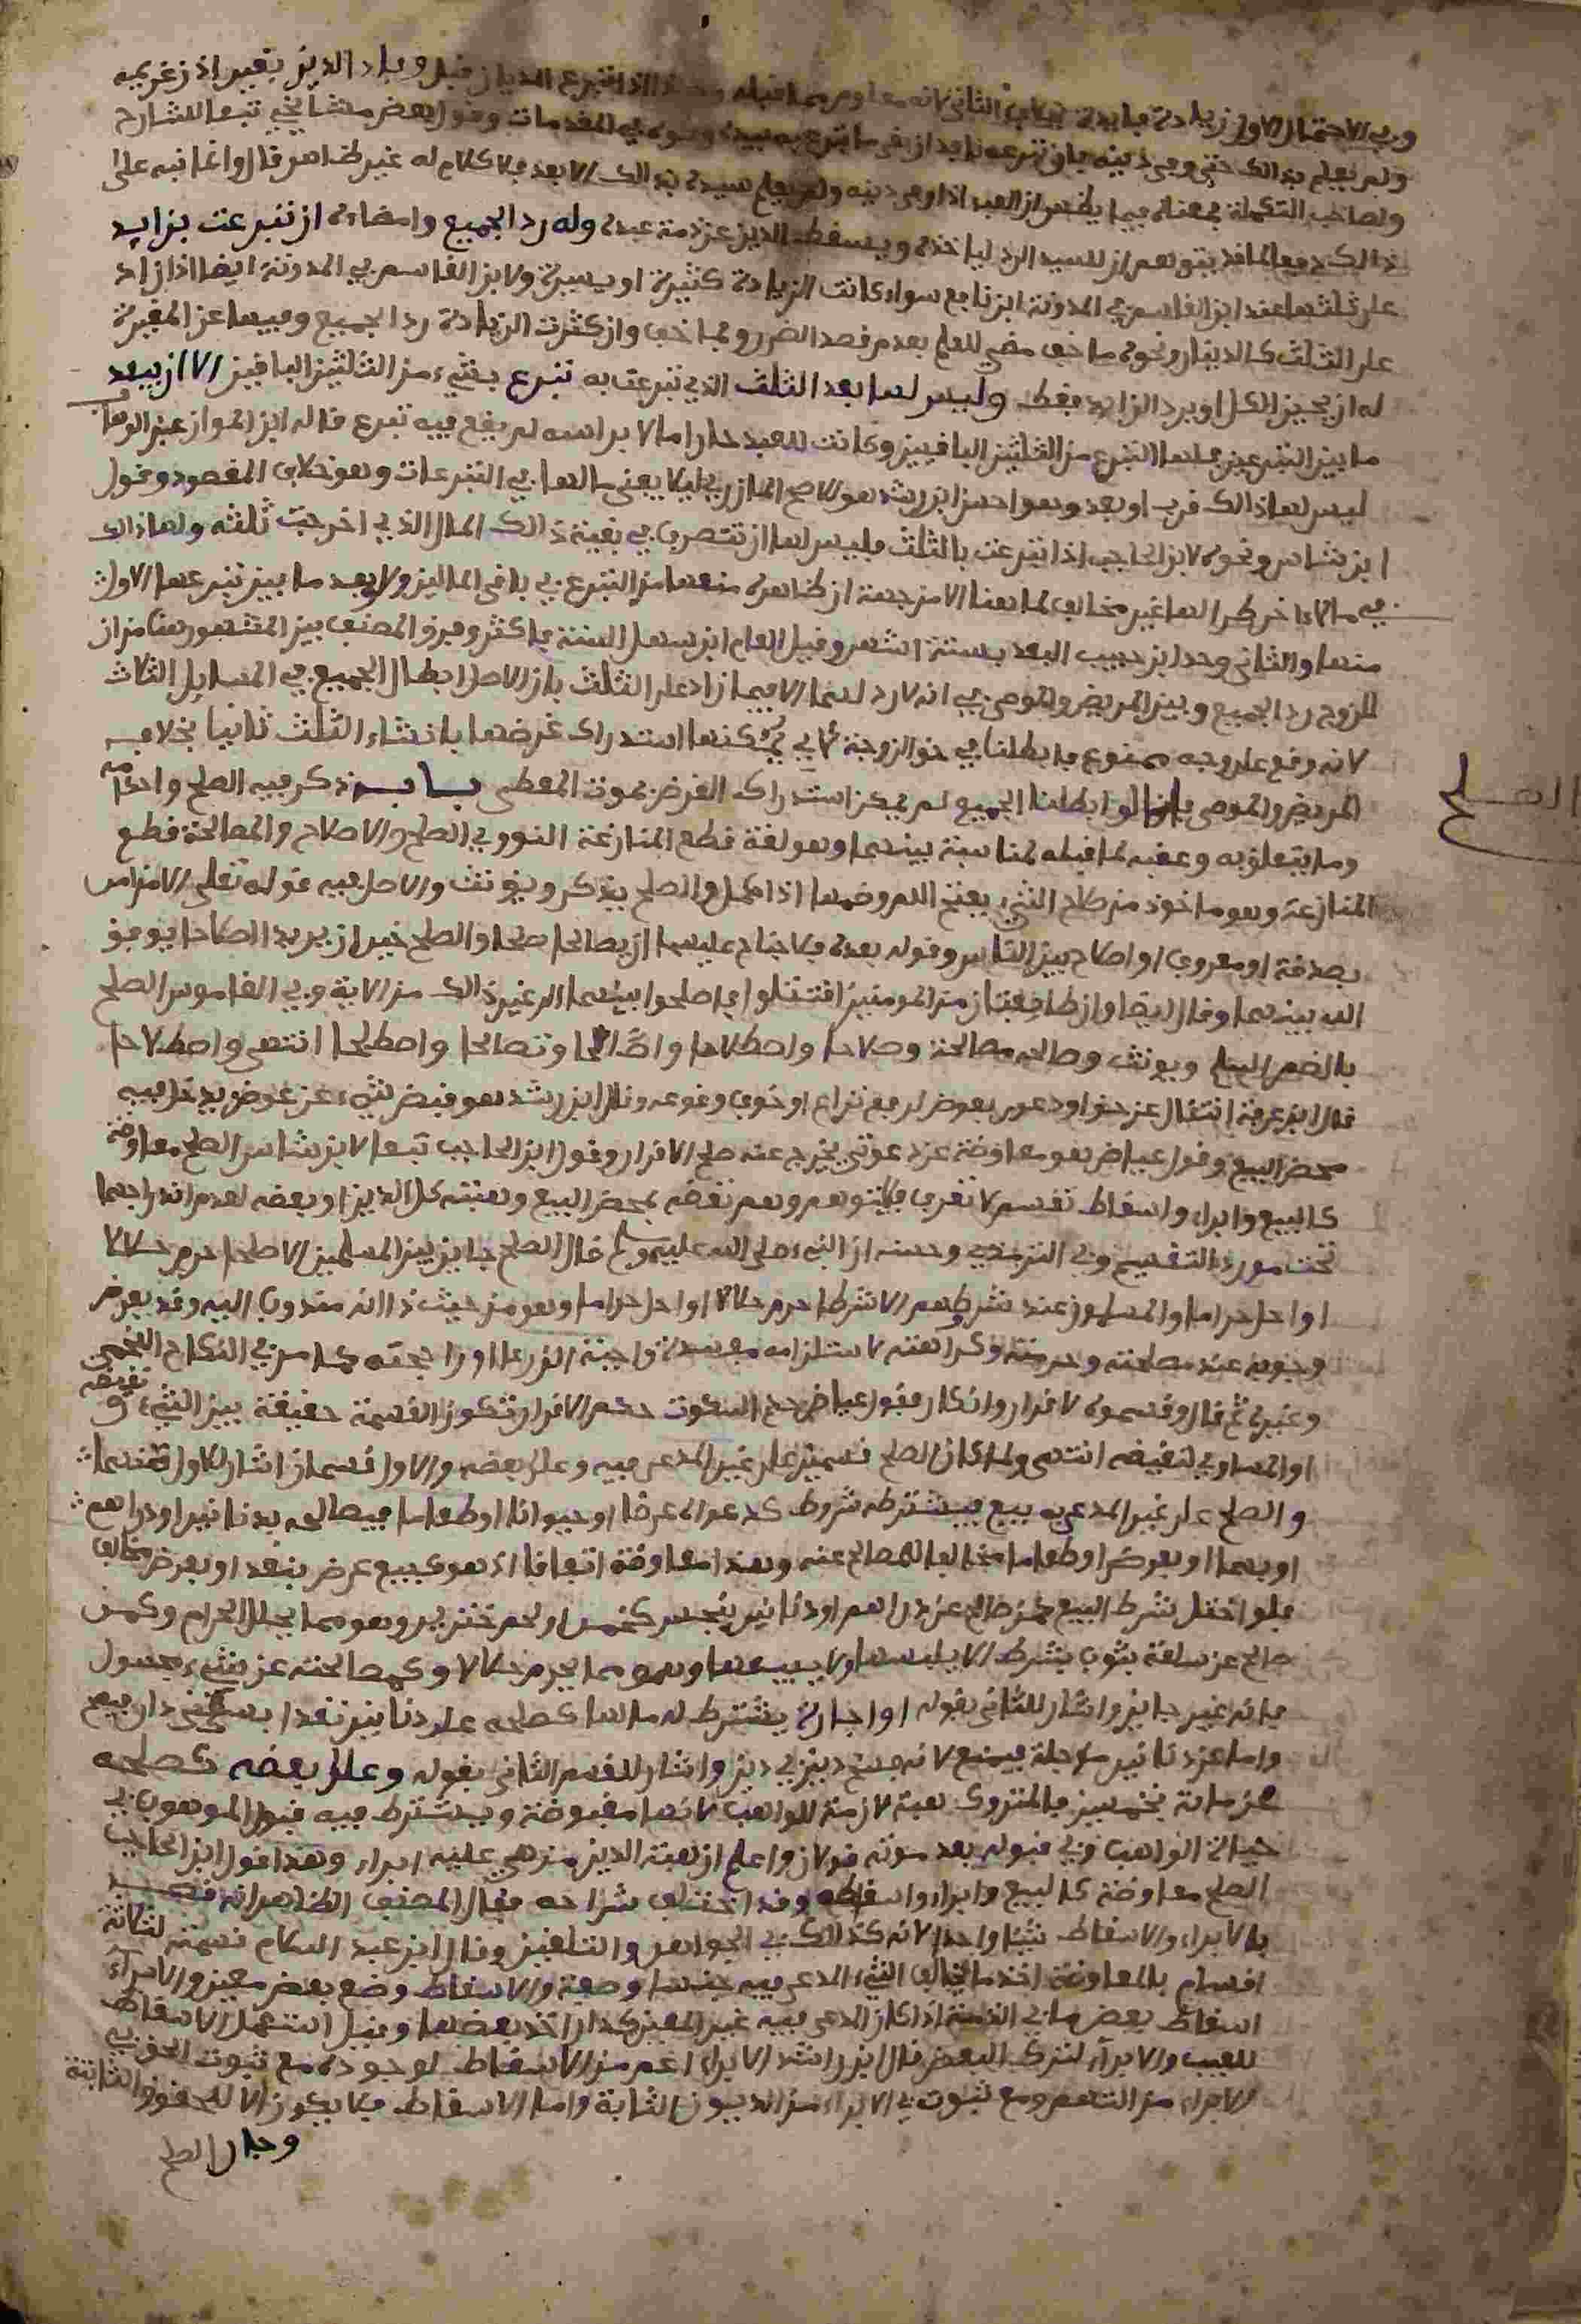 وفي الاحتمال الاول زيادة فايدة الثاني لانه معلوم مما قبله اذا تبرع الديان قبل وباد الدين بغير اذن غريمه
ولم يعلم بذالك حتى وفى دينه فان تبرعه نافذ ان بقي ما تبرع به بيده ونحوه في المقدمات وقول بعض مشايخي تبعا للشارح
ولصاحب التكملة بمعناه فيما يظهر ان العبد اذا وفى دينه ولم يعلم سيده بذالك الا بعد فلا كلام له غير ظاهر قال وانما نبه على
ذالك دفعا لما قد يتوهم ان للسيد الرد لياخذه ويسقط الدين عن ذمة عبده وله رد الجميع وامضاءه ان تبرعت بزايد
على ثلثها عند ابن القاسم في المدونة ابن نافع سواء كانت الزيادة كثيرة او يسيرة ولابن القاسم في المدونة ايضا اذا زاد
على الثلث كالدينار ونحوه ما خف مضى للعلم بعدم قصد الضرر وبما خف وان كثرت الزيادة رد الجميع وفيها عن المغيرة
له ان يجيز الكل او يرد الزايد فقط وليس لها بعد الثلث الذي تبرعت به تبرع بشيء من الثلثين الباقيين الا ان يبعد
ما بين التبرعين فلها التبرع من الثلثين الباقيين وكانت للعبد حارا مالا براسه لم يقع فيه تبرع قاله ابن المواز عبد الوهاب
ليس لها ذالك قرب او بعد وهو احسن ابن رشد هو الاصح المازري ليلا يفنى مالها في التبرعات وهو خلاف المقصود وقول
ابن شاس ونحوه لابن الحاجب اذا تبرعت بالثلث فليس لها ان تتصرف في بقية ذالك المال الذي اخرجت ثلثه ولها ذالك
في مال اخر طرا لها غير مخالف لما هنا الا من جهة ان ظاهره منعها من التبرع في باقي المالين ولو بعد ما بين تبرعها الاول
منها والثاني وحد ابن حبيب البعد بستة اشهر وقيل العام ابن سهل السنة فاكثر وفرق المصنف بين المشهور هنا من ان
للزوج رد الجميع وبين المريض والموصي في انه لا رد لهما الا فيما زاد على الثلث بان الاصل ابطال الجميع في المسايل الثلاث
لانه وقع على وجه ممنوع فابطلنا في حق الزوجة يمكنها استدراك غرضها بانشاء الثلث ثانيا بخلاف
المريض والموصي لو ابطلنا الجميع لم يمكن استدراك الغرض بموت المعطي باب ذكر فيه الصلح واحكامه
وما يتعلق به وعقبه لما قبله لمناسبة بينهما وهو لغة قطع المنازعة النووي الصلح والاصلاح والمصالحة قطع
المنازعة وهو ماخوذ من صلح الشيء بفتح اللام وضمها اذا كمل والصلح يذكر ويونث والاصل فيه قوله تعلى الا من امر
بصدقة او معروف او اصلاح بين الناس وقوله بعده فلا جناح عليهما ان يصالحا صلحا والصلح خير ان يريدا اصلاحا يوفق
الله بينهما وقال ايضا وان طايفتان من المومنين اقتتلوا فاصلحوا بينهما الى غير ذالك من الاية وفي القاموس الصلح
بالضم السلم ويونث وصالحه مصالحة وصلاحا واصطلاحا واصالحا وتصالحا واصطلحا انتهى واصطلاحا
قال ابن عرفة انتقال عن حق او دعوى بعوض لرفع نزاع او خوف وقوعه وقال ابن رشد هو قبض شيء عن عوض يدخل فيه
محض البيع وقول عياض هو معاوضة عن دعوى يخرج عنه صلح الاقرار وقول ابن الحاجب تبعا لابن شاس الصلح معاوضة
كالبيع وابراء واسقاط تقسم لا تعريف فليتوهم وهم نقضه بمحض البيع وهبته كل الدين او بعضه لعدم اندراجهما
تحت مورد التقسيم وفي الترمذي وحسنه ان النبي صلى الله عليه وسلم قال الصلح جايز بين المسلمين الا صلحا حرم حلالا
او احل حراما والمسلمون عند شروطهم الا شرطا حرم حلالا او احل حراما وهو من حيث ذاته مندوب اليه وقد يعرض
وجوبه عند مصلحته وحرمته وكراهته لاستلزامه مفسدة واجبة الدرء او راجحته كما مر في النكاح اللخمي
وغيره ثم قال وقسموه لاقرار وانكار فقول عياض حكم السكوت حكم الاقرار تكون القسمة حقيقة بين الشيء ونقيضه
او المساوي لنقيضه انتهى ولما كان الصلح قسمين على غير المدعى فيه وعلى بعضه والاول قسمان اشار للاول منهما
والصلح على غير المدعى به بيع فيشترط شروط كدعواه عرضا او حيوانا او طعاما فيصالحه بدنانير او دراهم
او بهما او بعرض او طعاما مخالفا للمصالح عنه وهذا معاوضة اتفاقا اذ هو كبيع عرض بنقد او بعرض مخالف
فلو اختل شرط البيع كمن صالح عن دراهم او دنانير بنجس كخمر او لحم خنزير وهو مما يحلل الحرام وكمن
صالح عن سلعة بثوب بشرط الا يلبسها ولا يبيعها وهو مما يحرم حلالا وكمصالحته عن شيء مجهول
فانه غير جايز واشار للثاني بقوله او اجارة يشترط له ما لها كصلحه على دنانير نقدا بسكنى دار فيصح
واما عن دنانير موجلة فيمنع لانه فسخ دين في دين واشار للقسم الثاني بقوله وعلى بعضه كصلحه
عن ماية بخمسين فالمتروك هبة لازمة للواهب لانها مقبوضة ويشترط فيه قبول الموهوب في
حياة الواهب وفي قبوله بعد موته قولان واعلم ان هبة الدين من هي عليه ابراء وهذا قول ابن الحاجب
الصلح معاوضة كالبيع وابراء واسقاط وقد اختلف شراحه فقال المصنف الظاهر انه قصد
بالابراء والاسقاط شيئا واحدا لانه كذالك في الجواهر والتلقين وقال ابن عبد السلام قسمه لثلاثة
اقسام بالمعاوضة اخذ ما يخالف الشيء المدعى فيه جنسا وصفة والاسقاط وضع بعض معين والابراء
اسقاط بعض ما في الذمة اذا كان المدعى فيه غير المعين كدار اخذ بعضها وقيل استعمل الاسقاط
للعيب والابراء لترك البعض قال ابن راشد الابراء اعم من الاسقاط لوجوده مع ثبوت الحق في
الابراء من التهم ومع ثبوت في الابراء من الديون الثابتة واما الاسقاط فلا يكون الا للحقوق الثابتة
وجاز الصلح
الصلح